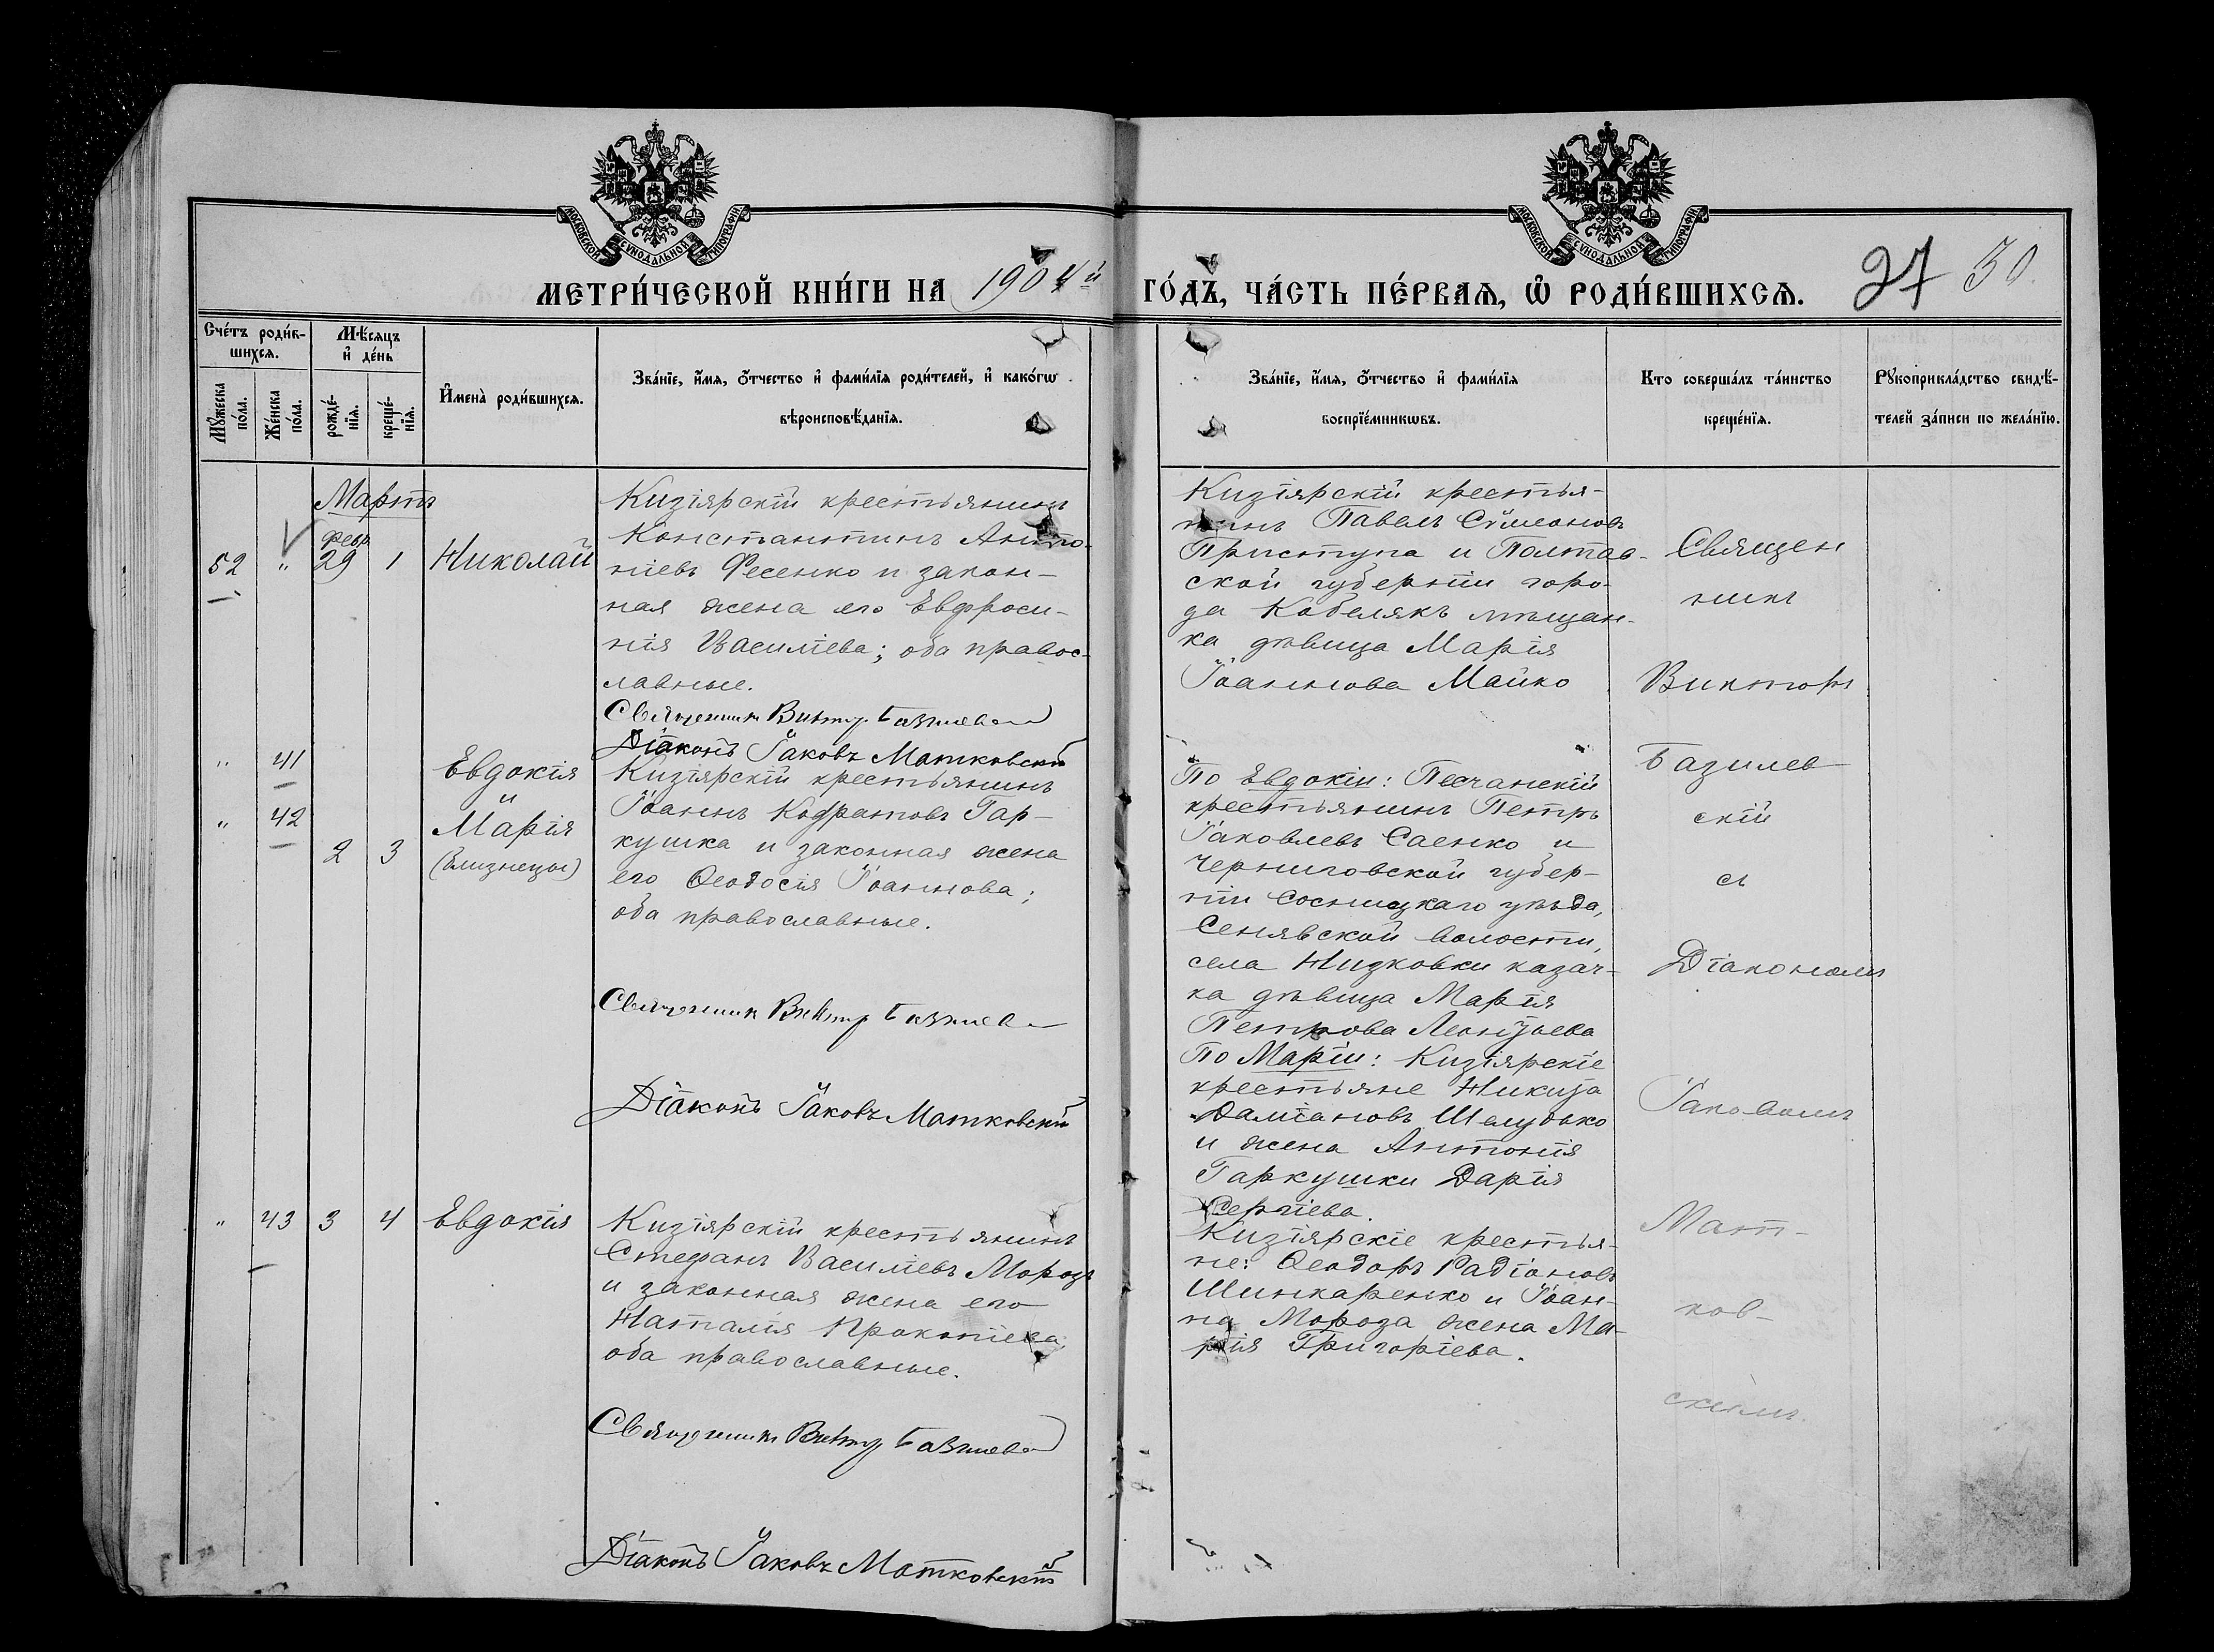 МОСКОВСКОЙ СѴНОДАЛЬНОЙ ТИПОГРАФІИ
МОСКОВСКОЙ СѴНОДАЛЬНОЙ ТИПОГРАФІИ
МЕТРИ́ЧЕСКОЙ КНИ́ГИ НА 1904й ГО́ДЪ, ЧА́СТЬ ПЕ́РВАѦ, Ѽ РОДИ́ВШИХСѦ.
27 30.
Сче́тъ роди́в-
шихсѧ.
Мꙋ́жеска
по́ла.
Же́нска
по́ла.
Мѣ́сяцъ
и҆ де́нь
рожде́-
нїѧ.
креще́-
нїѧ.
И҆мена̀ роди́вшихсѧ.
Зва́нїе, и҆́мѧ, ѻ҆́тчество и҆ фами́лїѧ роди́телей, и҆ како́гѡ
вѣроисповѣ́данїѧ.
Зва́нїе, и҆́мѧ, ѻ҆́тчество и҆ фами́лїѧ
воспрїе́мникѡвъ.
Кто соверша́лъ та́инство
креще́нїѧ.
Рꙋкоприкла́дство свидѣ́-
телей за́писи по жела́нїю.
Мартъ
февр
52 " 29 1 Николай
Кизіярскій крестьянинъ
Константинъ Анто-
ніевъ Фесенко и закон-
ная жена его Евфроси-
нія Василіева; оба правос-
лавные.
Священник Виктор Базилевс
Діаконъ Іаковъ Матковскій
Кизіярскій крестья-
нинъ Павелъ Сѵмеоновъ
Приступа и Полтав-
ской губерніи горо-
да Кобелякъ мѣщан-
ка дѣвица Марія
Іоаннова Майко
Священ
никъ
Викторъ
Базилев
скій
съ
Діакономъ
Іаковомъ
Мат-
ков-
скимъ.
" 41 Евдокія
и
" 42 Марія
2 3 (близнецы)
Кизіярскій крестьянинъ
Іоаннъ Кодратовъ Гар-
кушка и законная жена
его Ѳеодосія Іоаннова;
оба православные.
Священник Виктор Базилев
Діаконъ Іаковъ Матковскій
По Евдокіи: Песчанскій
крестьянинъ Петръ
Іаковлевъ Саенко и
Черниговской губер-
ніи Сосницкаго уѣзда,
Сенявской волости,
села казач-
ка дѣвица Марія
Петрова Леонтьева
По Маріи: Кизіярскіе
крестьяне Никита
Даміановъ Шелудько
и жена Антонія
Гаркушки Дарія
Сергіева.
" 43 3 4 Евдокія
Кизіярскій крестьянинъ
Стефанъ Василіевъ Морозъ
и законная жена его
Наталія Прокопіева
оба православные.
Священник Виктор Базилевс
Діаконъ Іаковъ Матковскій
Кизіярскіе крестья-
не: Ѳеодоръ Радіоновъ
Шинкаренко и Іоан-
на Мороза жена Ма-
рія Григоріева.